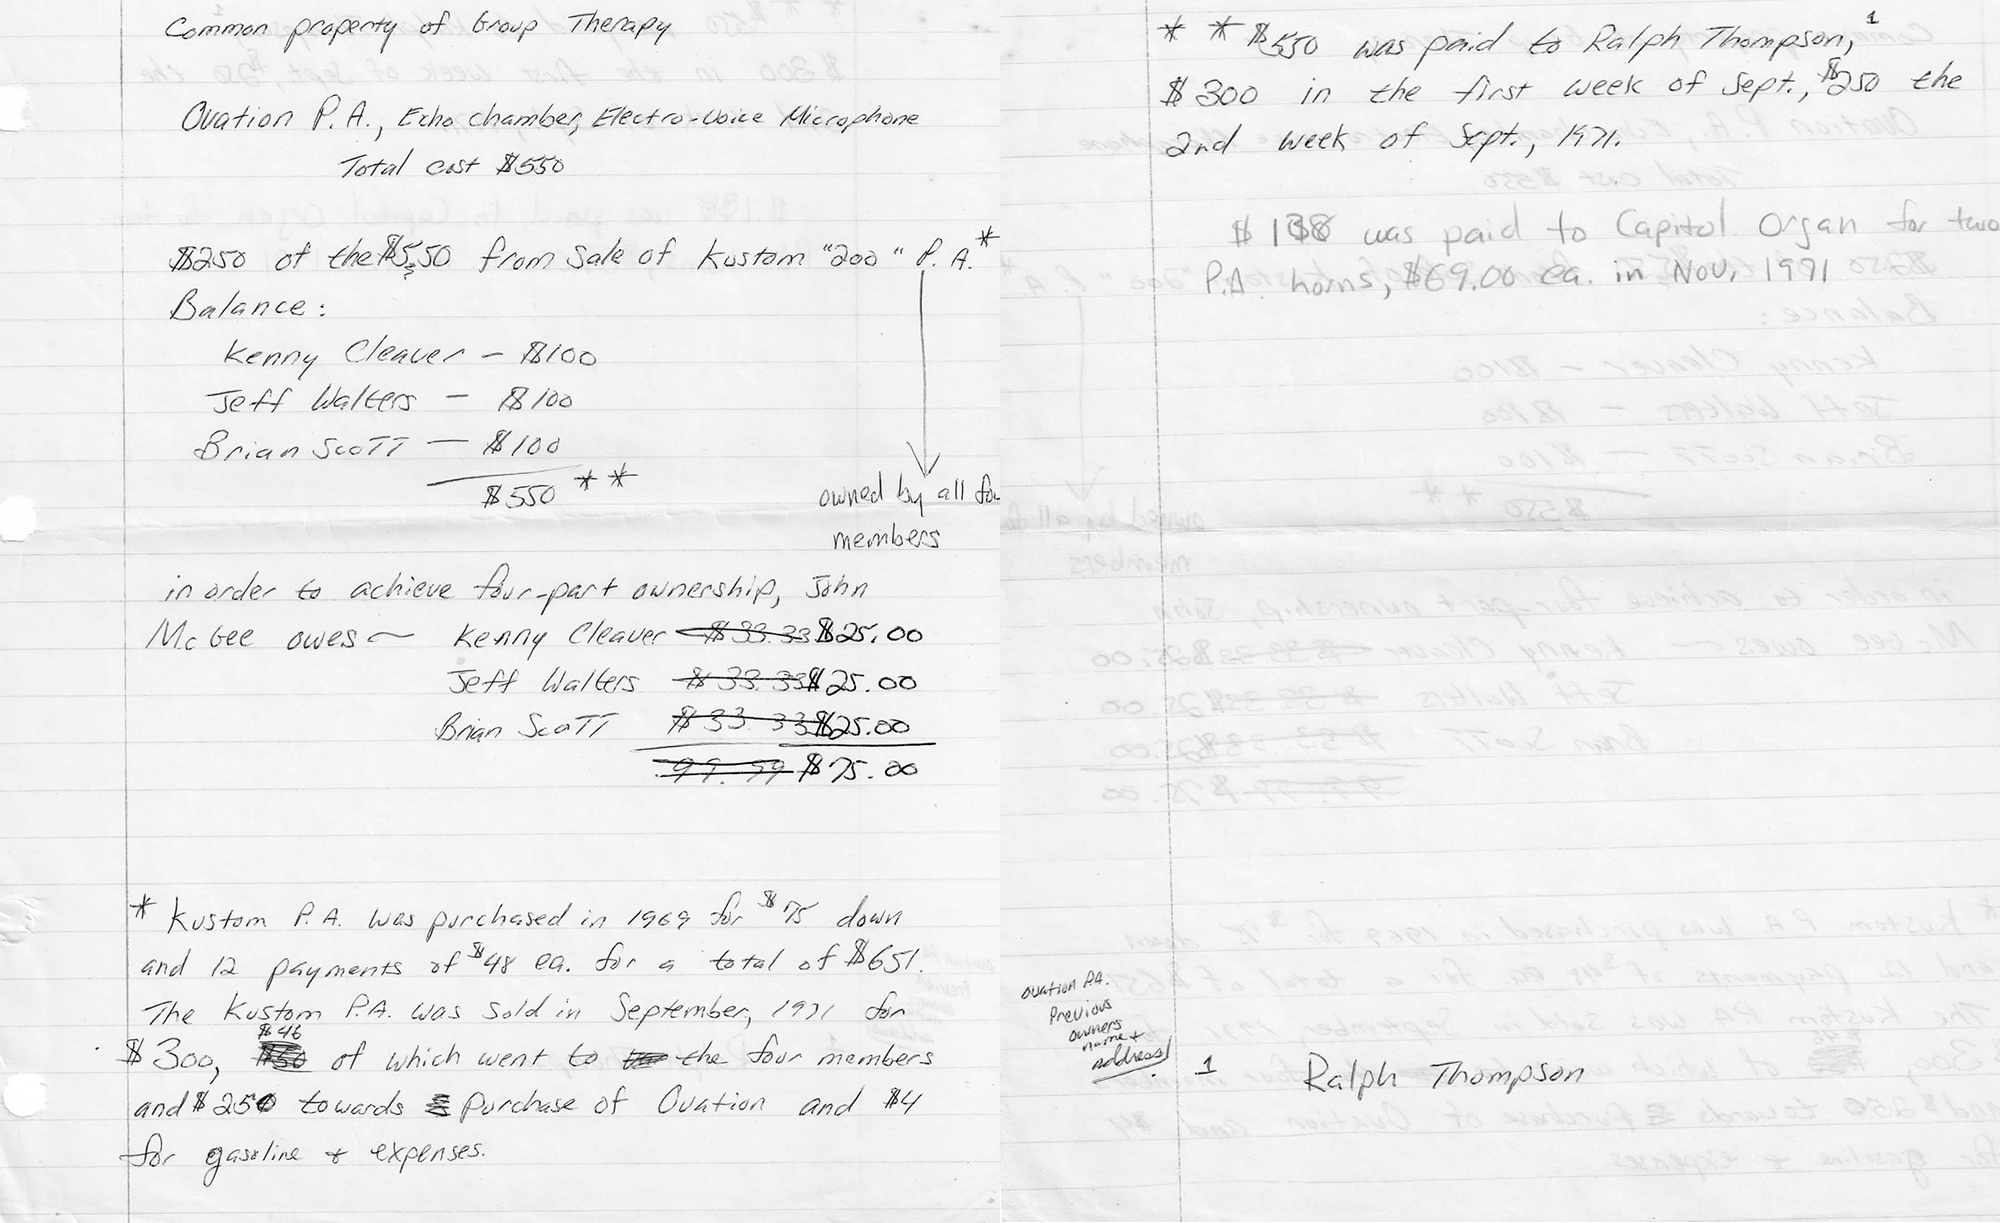 Common property of Group Therapy
Ovation P.A., Echo chamber, Electro-Voice Microphone
Total cost $550
$250 of the $550 from sale of Kustom "200" P.A.*
Balance:
Kenny Cleaver - $100
Jeff Walters - $100
Brian Scott - $100
$550 **
owned by all fou
members
in order to achieve four-part ownership, John
McGee owes - Kenny Cleaver $33.33 $25.00
Jeff Walters $33.33 $25.00
Brian Scott $33.33 $25.00
99.99 $75.00
* Kustom P.A. was purchased in 1969 for $75 down
and 12 payments of $48 ea. for a total of $651.
The Kustom P.A. was sold in September, 1971 for
$46
$300, $50 of which went to the four members
and $250 towards purchase of Ovation and $4
for gasoline + expenses.
** $550 was paid to Ralph Thompson,1
$300 in the first week of Sept., $250 the
2nd week of Sept., 1971.
$138 was paid to Capitol Organ for two
P.A. horns, $69.00 ea. in Nov, 1971
Ovation P.A.
Previous
owners
name +
address!
1 Ralph Thompson